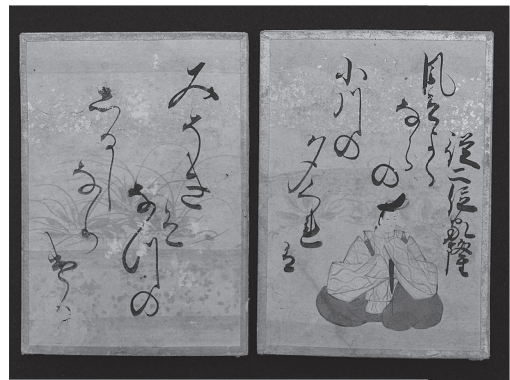 從二位家隆
風そよく
ならの
小川の
夕くれは
みそきそ
なつの
しるし
なり
ける